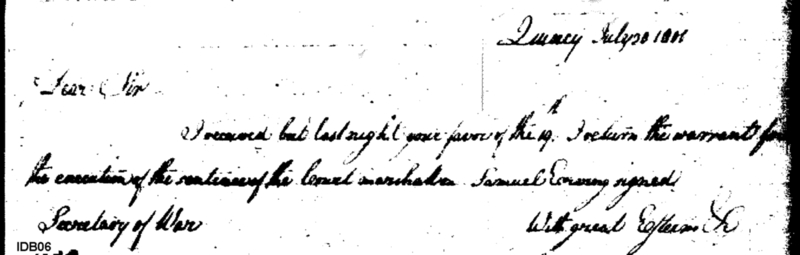 Quincy July 30 1801
Dear Sir
I received but last night your favor of the 19th. I return the warrant for
the execution of the sentence of the Court marshall on Samuel Ewing signed
Secretary of War With great Esteem &c
IDB06